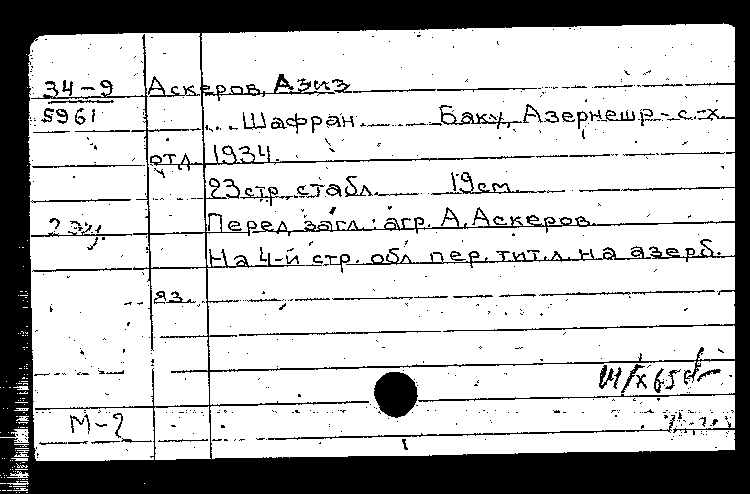 34-9 Аскеров, Азиз
5961 ... Шафран. Баку, Азернешр.-с.-х.
отд. 1934.
23 стр. с табл. 19 см.
2 эк. Перед загл.: агр. А. Аскеров.
На 4-й стр. обл. пер. тит. л. на азерб.
яз.
М-2